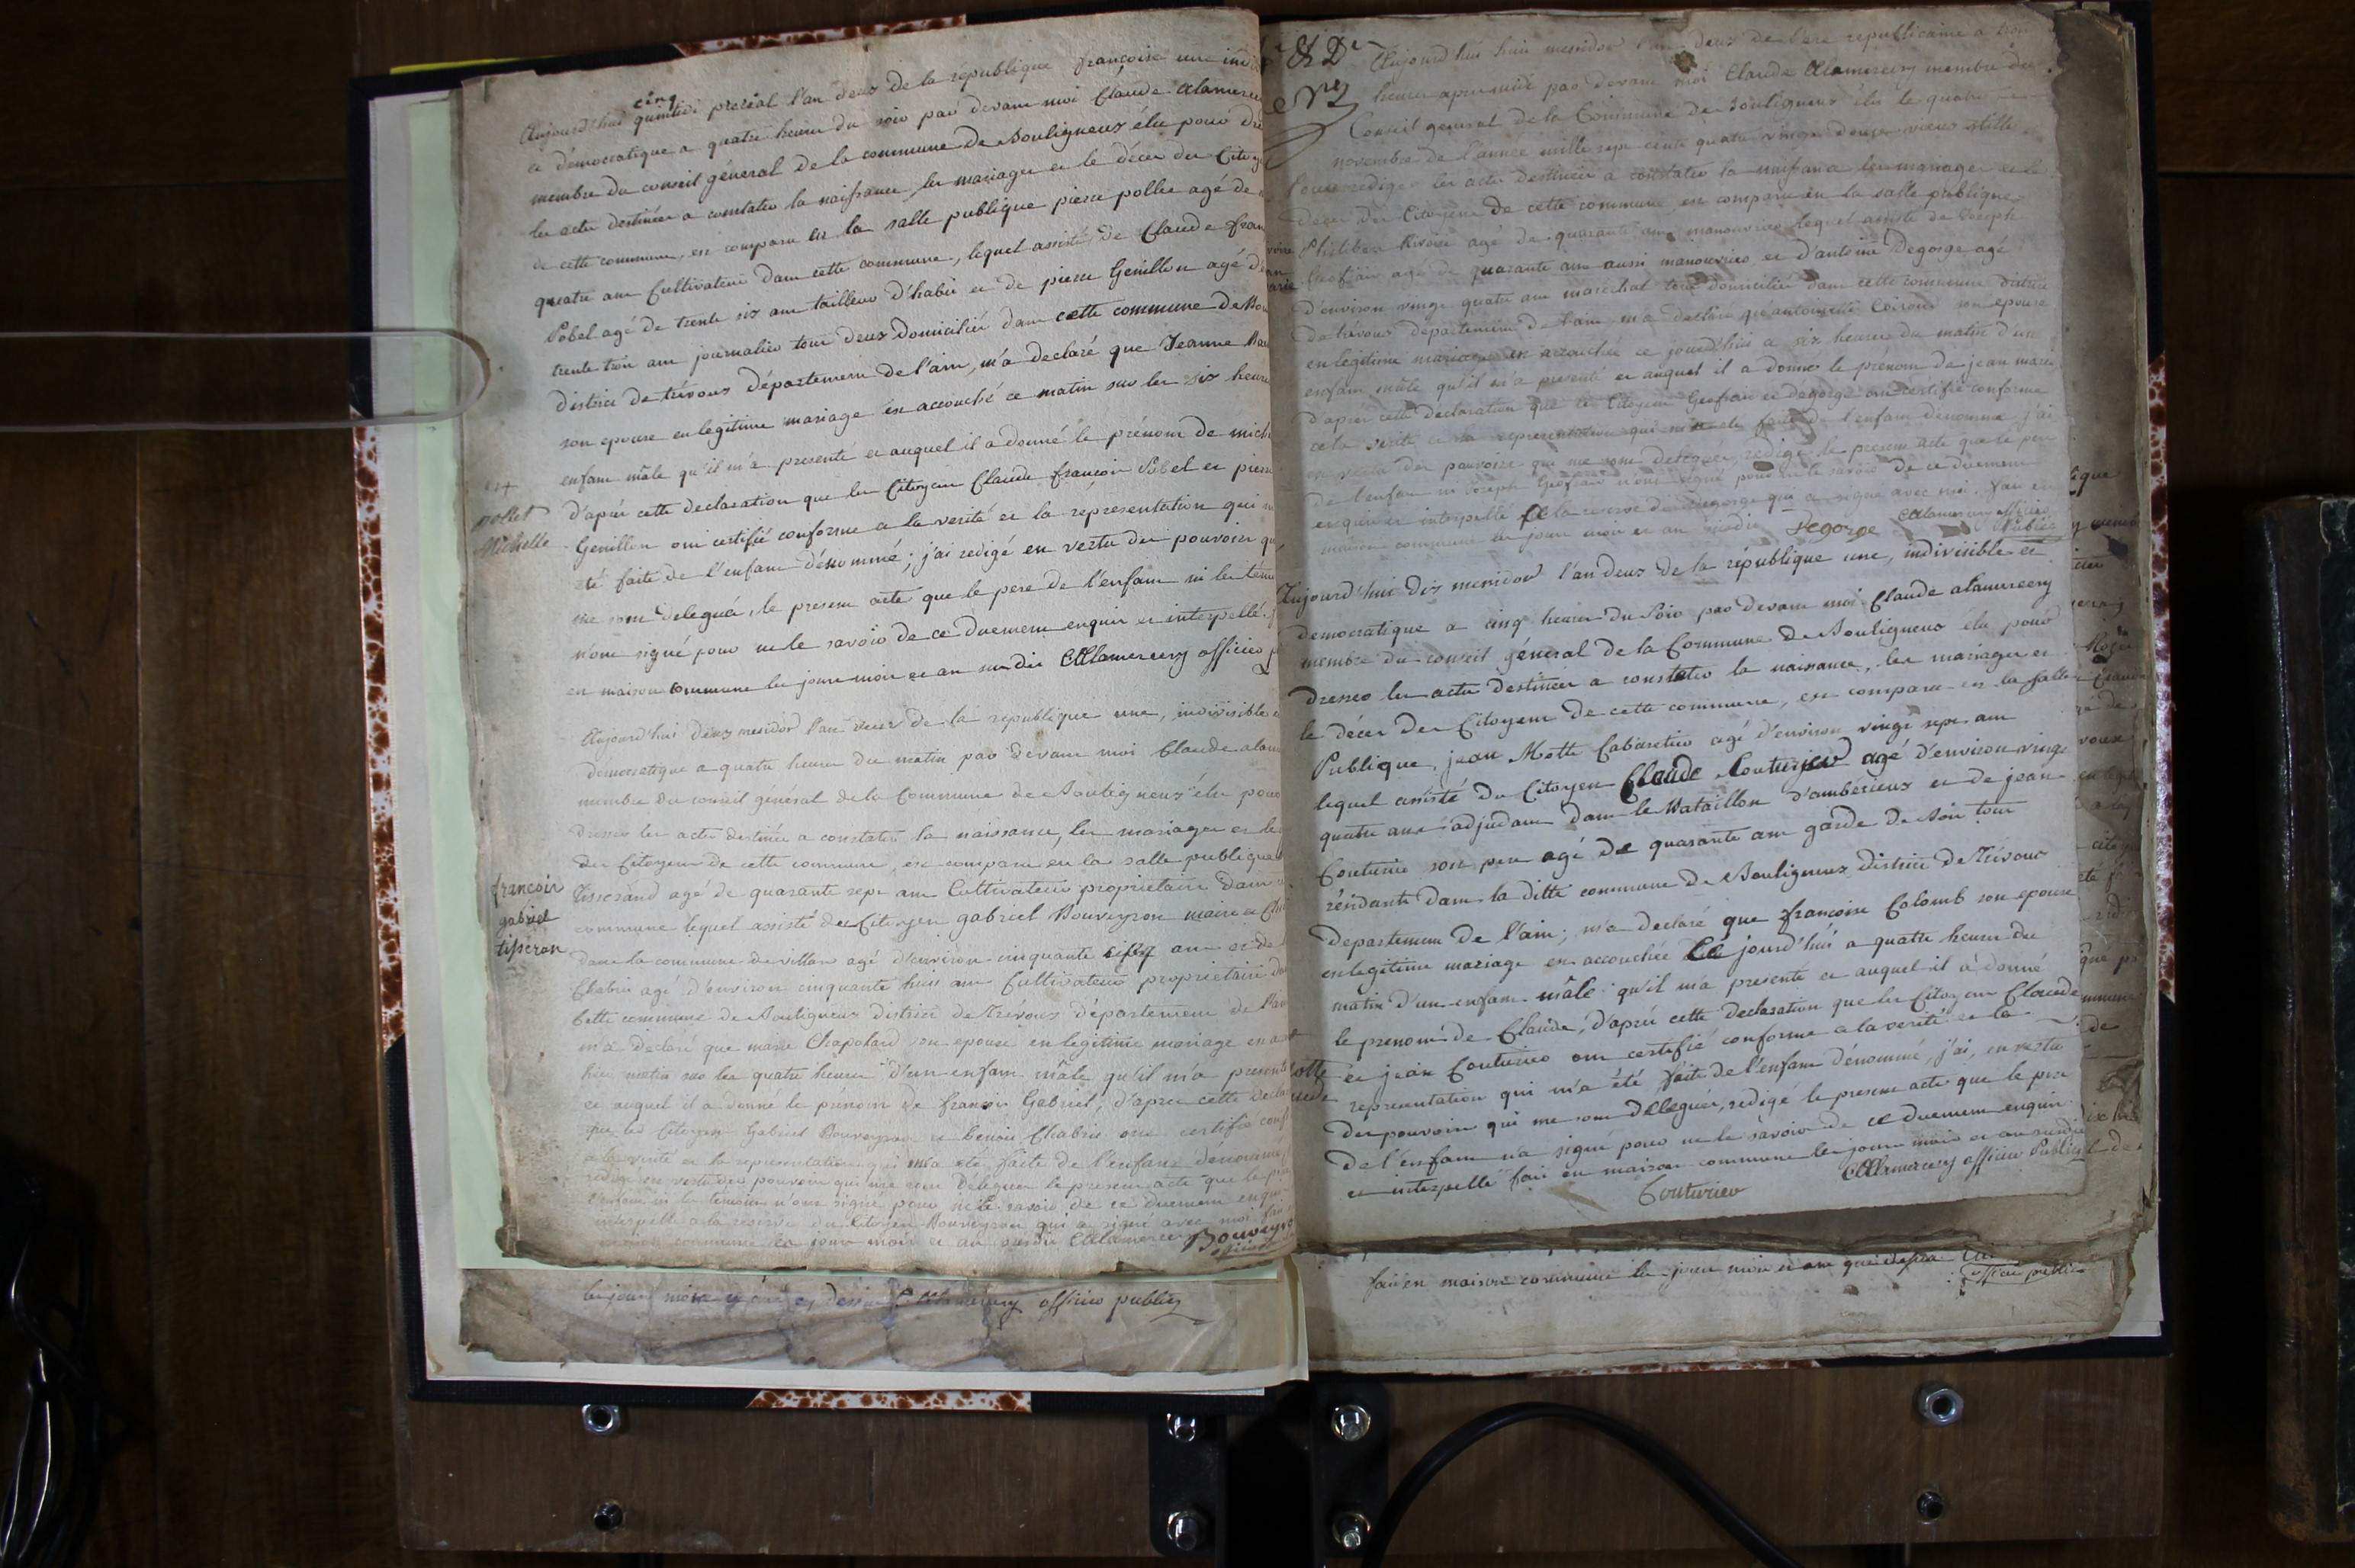 cinq
Aujourd'hui quintidi preréal l'an deux de la république françoise une indi
ce démocratique a quatre heures du soir par devant moi Claude alamerce
membre du conseil général de la commune de Bouligneux élu pour dre
les actes destinées a constater la naissance, les mariages et le décès des Citoye
de cette commune, est comparu en la salle publique pierre pollet agé de
quatre ans Cultivateur dans cette commune, lequel assisté de Claude fran
Pobel agé de trente six ans tailleur d'habit et de pierre Genillon agé de
trente trois ans journalier tous deux domiciliés dans cette commune de Bou
district de trévoux département de l'ain, m'a declaré que Jeanne
son epouse en legitime mariage est accouché ce matin sur les six heures
enfant mâle qu'il m'a presenté et auquel il a donné le prénom de mich
d'après cette declaration que les Citoyens Claude françois Pobel et pierre
pollet
Michelle
Genillon ont certifié conforme a la verité et la representation qui m
été faite de l'enfant dénommé; j'ai redigé en vertu des pouvoirs qu
me sont delegués, le present acte que le pere de l'enfant ni les témo
n'ont signé pour ne le savoir de ce duement enquis et interpellé.
en maison commune les jours mois et an susdits Alamercery officier p
Aujourd'hui deux mesidor l'an deux de la republique une, indivisible e
démocratique a quatre heures du matin par devant moi Claude alam
membre du conseil général de la Commune de Bouligneux élu pour
dresser les actes destinés a constater la naissance, les mariages et le
des Citoyens de cette commune, est comparu en la salle publique
françois
gabriel
tisseran
Tisserand agé de quarante sept ans Cultivateur proprietaire dans
commune lequel assisté des Citoyen gabriel Bouveyron maire
dans la commune de villars agé d'environ cinquante cinq ans et de
Chabrier agé d'environ cinquante huit ans Cultivateur proprietaire
Cette commune de Bouligneux district de Trévoux département de l'ain
m'a declaré que marie Chapolard son epouse en legitime mariage est
hier matin sur les quatre heures d'un enfant mâle qu'il m'a presenté
et auquel il a donné le prénom de françois Gabriel, d'après cette decla
que les Citoyens Gabriel Bouveyron et benoit Chabrier ont certifié conf
a la verité et la representation qui m'a été faite de l'enfant denommé
redigé en vertu des pouvoirs qui me sont delegués le present acte que le
l'enfant ni les temoins n'ont signé pour ne le savoir de ce duement enquis
interpellé a la reserve du Citoyen Bouveyron qui a signé avec moi
commune les jours mois et an susdits Alamercery Bouveyro
les jours mois et Alamercery officier public
Aujourd'hui huit mesidor l'an deux de l'ere republicaine a trois
heures après midi par devant moi Claude Alamercery membre du
Conseil general de la Commune de Bouligneux élu le quatre
novembre de l'année mille sept cents quatre vingt douze vieux stille
Pour rediger les actes destinées a constater la naissance les mariages et le
décès des Citoyens de cette commune, est comparu en la salle publique
Philibert Rivoire agé de quarante ans manouvrier lequel assisté de Joseph
Geofrai agé de quarante ans aussi manouvrier et d'antoine Degorge agé
d'environ vingt quatre ans marechal tous domiciliés dans cette commune district
de trévoux departement de l'ain, m'a declaré qu'antoinette son epouse
en legitime mariage est accouchée ce jourd'hui a six heures du matin d'un
enfant mâle qu'il m'a presenté et auquel il a donné le prénom de jean marie
d'après cette declaration que les Citoyens Geofrai et degorge ont certifié conforme
a la verité et la representation qui m'a été faite de l'enfant denommé j'ai
en vertu des pouvoirs qui me sont delegués redigé le present acte que le pere
de l'enfant ni Joseph Geofrai n'ont signé pour ne le savoir de ce duement
enquis et interpellé a la reserve d'antoine degorge qui a signé avec moi. fait en
maison commune les jours mois et an susdits Degorge Alamercery officier
Public
Aujourd'hui dix mesidor l'an deux de la république une, indivisible et
democratique a cinq heures du soir par devant moi Claude alamercery
membre du conseil général de la Commune de Bouligneux élu pour
dresser les actes destinées a constater la naissance, les mariages et
le décès des Citoyens de cette commune, est comparu en la salle
Publique, jean Motte Cabaretier agé d'environ vingt sept ans
lequel assisté du Citoyen Claude Couturier agé d'environ vingt
quatre ans adjudant dans le Bataillon d'ambérieux et de jean
Couturier son pere agé de quarante ans garde de bois tous
résidants dans la ditte commune de Bouligneux district de Trévoux
departement de l'ain; m'a declaré que françoise Colomb son epouse
en legitime mariage est accouchée Ce jourd'hui a quatre heures du
matin d'un enfant mâle qu'il m'a presenté et auquel il a donné
le prenom de Claude, d'après cette declaration que les Citoyens Claude
et jean Couturier ont certifié conforme a la verité et la
representation qui m'a été faite de l'enfant dénommé, j'ai, en vertu
des pouvoirs qui me sont délégués, redigé le present acte que le pere
de l'enfant n'a signé pour ne le savoir de ce duement enquis
et interpellé fait en maison commune les jours mois et an susdits
Couturier Alamercery officier Public
fait en maison commune les jours mois et an que dessus
officier public